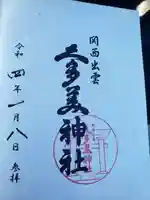 関西出雲
久多美神社
令和四年一月八日 参拝